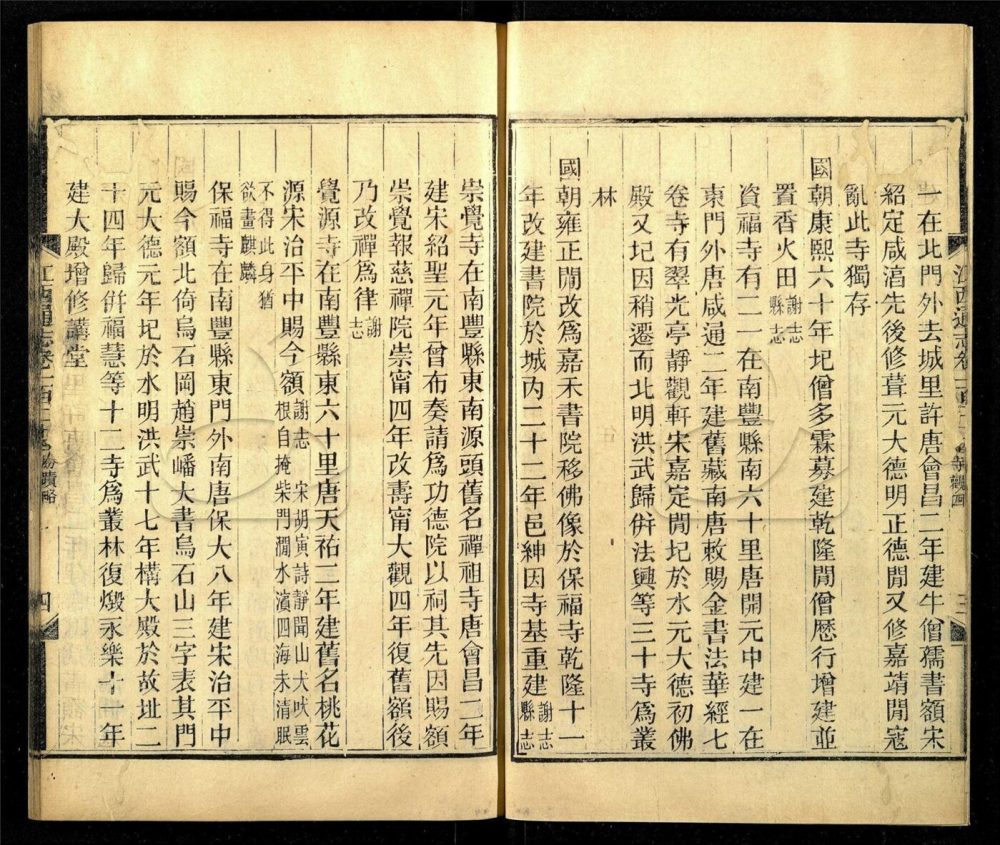 一在北門外去城里許唐會昌二年建牛僧孺書額宋
紹定咸淳先後修葺元大德明正德閒又修嘉靖閒寇
亂此寺獨存
國朝康熙六十年圮僧多霖募建乾隆閒僧厯行增建並
置香火田謝志縣志
資福寺有二一在南豐縣南六十里唐開元中建一在
東門外唐咸通二年建舊藏南唐敕賜金書法華經七
卷寺有翠光亭靜觀軒宋嘉定閒圮於水元大德初佛
殿又圮因稍遷而北明洪武歸併法興等三十寺爲叢
林
國朝雍正閒改爲嘉禾書院移佛像於保福寺乾隆十一
年改建書院於城内二十二年邑紳因寺基重建謝志縣志
崇覺寺在南豐縣東南源頭舊名禪祖寺唐會昌二年
建宋紹聖元年曾布奏請爲功德院以祠其先因賜額
崇覺報慈禪院崇甯四年改壽甯大觀四年復舊額後
乃改禪爲律謝志
覺源寺在南豐縣東六十里唐天祐二年建舊名桃花
源宋治平中賜今額謝志 宋胡寅詩靜聞山犬吠雲
根自掩柴門澗水濱四海未清眠
不得此身猶
欲畫麒麟
保福寺在南豐縣東門外南唐保大八年建宋治平中
賜今額北倚烏石岡趙崇嶓大書烏石山三字表其門
元大德元年圮於水明洪武十七年構大殿於故址二
十四年歸併福慧等十二寺爲叢林復燬永樂十一年
建大殿增修講堂
江西通志卷一百二十
勝蹟略
四